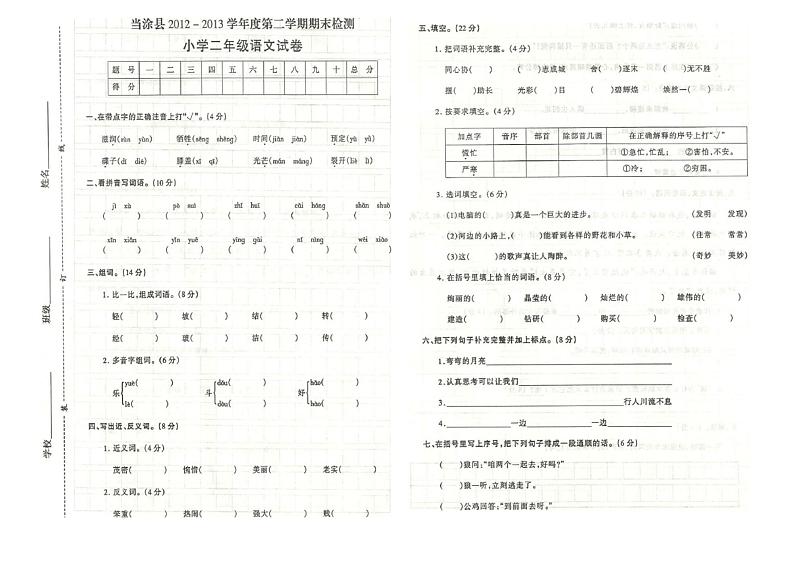 当涂县2012-2013学年度第二学期期末检测
小学二年级语文试卷
题 号 一 二 三 四 五 六 七 八 九 十 总 分
得 分
一、在带点字的正确注音上打"√"。(4分)
滋润(rùn yùn) 牺牲(sēng shēng) 时间(jiān jiàn) 预定(yù yǜ)
碟子(dí dié) 膝盖(xī qī) 光芒(máng mán) 裂开(liè lì)
二、看拼音写词语。(10分)
jì xù pò suì zhī huì cái hóng shān shuò
( ) ( ) ( ) ( ) ( )
xīn xiān yīn yuè yīng gāi nóng nóng wēi xiào
( ) ( ) ( ) ( ) ( )
三、组词。(14分)
1. 比一比,组成词语。(8分)
轻( ) 玻( ) 结( ) 转( )
经( ) 波( ) 洁( ) 传( )
2. 多音字组词。(6分)
乐 yuè( ) lè( ) 斗 dǒu( ) dòu( ) 好 hǎo( ) hào( )
四、写出近、反义词。(8分)
1. 近义词。(4分)
茂密( ) 惋惜( ) 美丽( ) 老实( )
2. 反义词。(4分)
笨重( ) 热闹( ) 强大( ) 贱( )
学校 班级 姓名
装 订 线
五、填空。(22分)
1. 把词语补充完整。(4分)
同心协( ) ( )志成城 舍( )逐末 ( )无不胜
揠( )助长 光彩( )目 ( )碧辉煌 焕然一( )
2. 按要求填空。(4分)
加点字 音序 部首 除部首几画 在正确解释的序号上打"√"
慌忙 ①急忙,忙乱; ②害怕,不安。
严寒 ①冷; ②穷困。
3. 选词填空。(6分)
(1)电脑的( )真是一个巨大的进步。 (发明 发现)
(2)河边的小路上,( )能看到各样的野花和小草。 (往常 常常)
(3)这( )的歌声真让人陶醉。 (奇妙 美妙)
4. 在括号里填上恰当的词语。(8分)
绚丽的( ) 晶莹的( ) 灿烂的( ) 雄伟的( )
建造( ) 钻研( ) 购买( ) 检查( )
六、把下列句子补充完整并加上标点。(8分)
1.弯弯的月亮
2.认真思考可以让我们
3. 行人川流不息
4. 一边 一边
七、在括号里写上序号,把下列句子排成一段通顺的话。(6分)
( )狼问:"咱两个一起去,好吗?"
( )狼一听,立刻逃走了。
( )公鸡回答:"到前面去呀。"